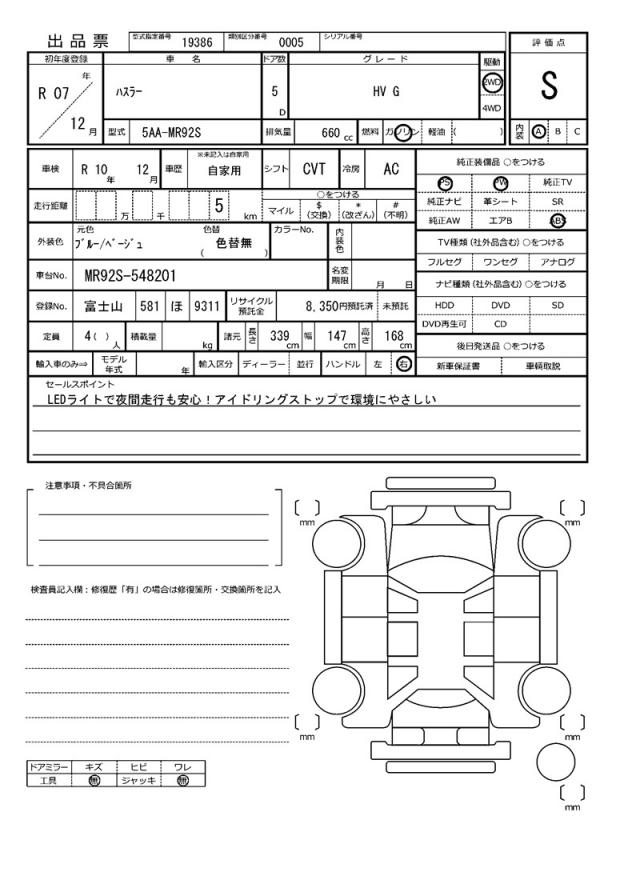 出品票 型式指定番号 19386 類別区分番号 0005 シリアル番号
評価点
S
初年度登録 車名 ドア数 グレード 駆動
R 07 年 12 月 ハスラー 5 D HV G 2WD 4WD
型式 5AA-MR92S 排気量 660 cc 燃料 ガソリン 軽油 ( )
内装 A B C
車検 R 10 年 12 月 車歴 ※未記入は自家用 自家用 シフト CVT 冷房 AC
走行距離 万 千 5 km ○をつける
マイル $ (交換) * (改ざん) # (不明)
外装色 元色 ブルー/ベージュ 色替 ( 色替無 ) カラーNo. 内装色
車台No. MR92S-548201 名変期限 月 日
登録No. 富士山 581 ほ 9311 リサイクル預託金 8,350円預託済 未預託
定員 4 ( ) 人 積載量 kg 諸元 長さ 339 cm 幅 147 cm 高さ 168 cm
輸入車のみ⇒ モデル年式 年 輸入区分 ディーラー 並行 ハンドル 左 右
純正装備品 ○をつける
PS PW 純正TV
純正ナビ 革シート SR
純正AW エアB ABS
TV種類 (社外品含む) ○をつける
フルセグ ワンセグ アナログ
ナビ種類 (社外品含む) ○をつける
HDD DVD SD
DVD再生可 CD
後日発送品 ○をつける
新車保証書 車輌取説
セールスポイント
LEDライトで夜間走行も安心!アイドリングストップで環境にやさしい
注意事項・不具合箇所
検査員記入欄:修復歴「有」の場合は修復箇所・交換箇所を記入
mm
mm
mm
mm
mm
ドアミラー キズ ヒビ ワレ
工具 無 ジャッキ 無